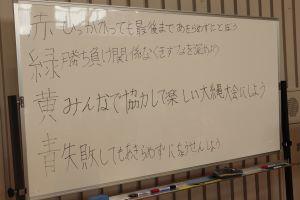 赤 ひっかかっても最後まであきらめずにとぼう
緑 勝ち負け関係なくきずなを深めよう
黄 みんなで協力して楽しい大縄大会にしよう
青 失敗してもあきらめずに